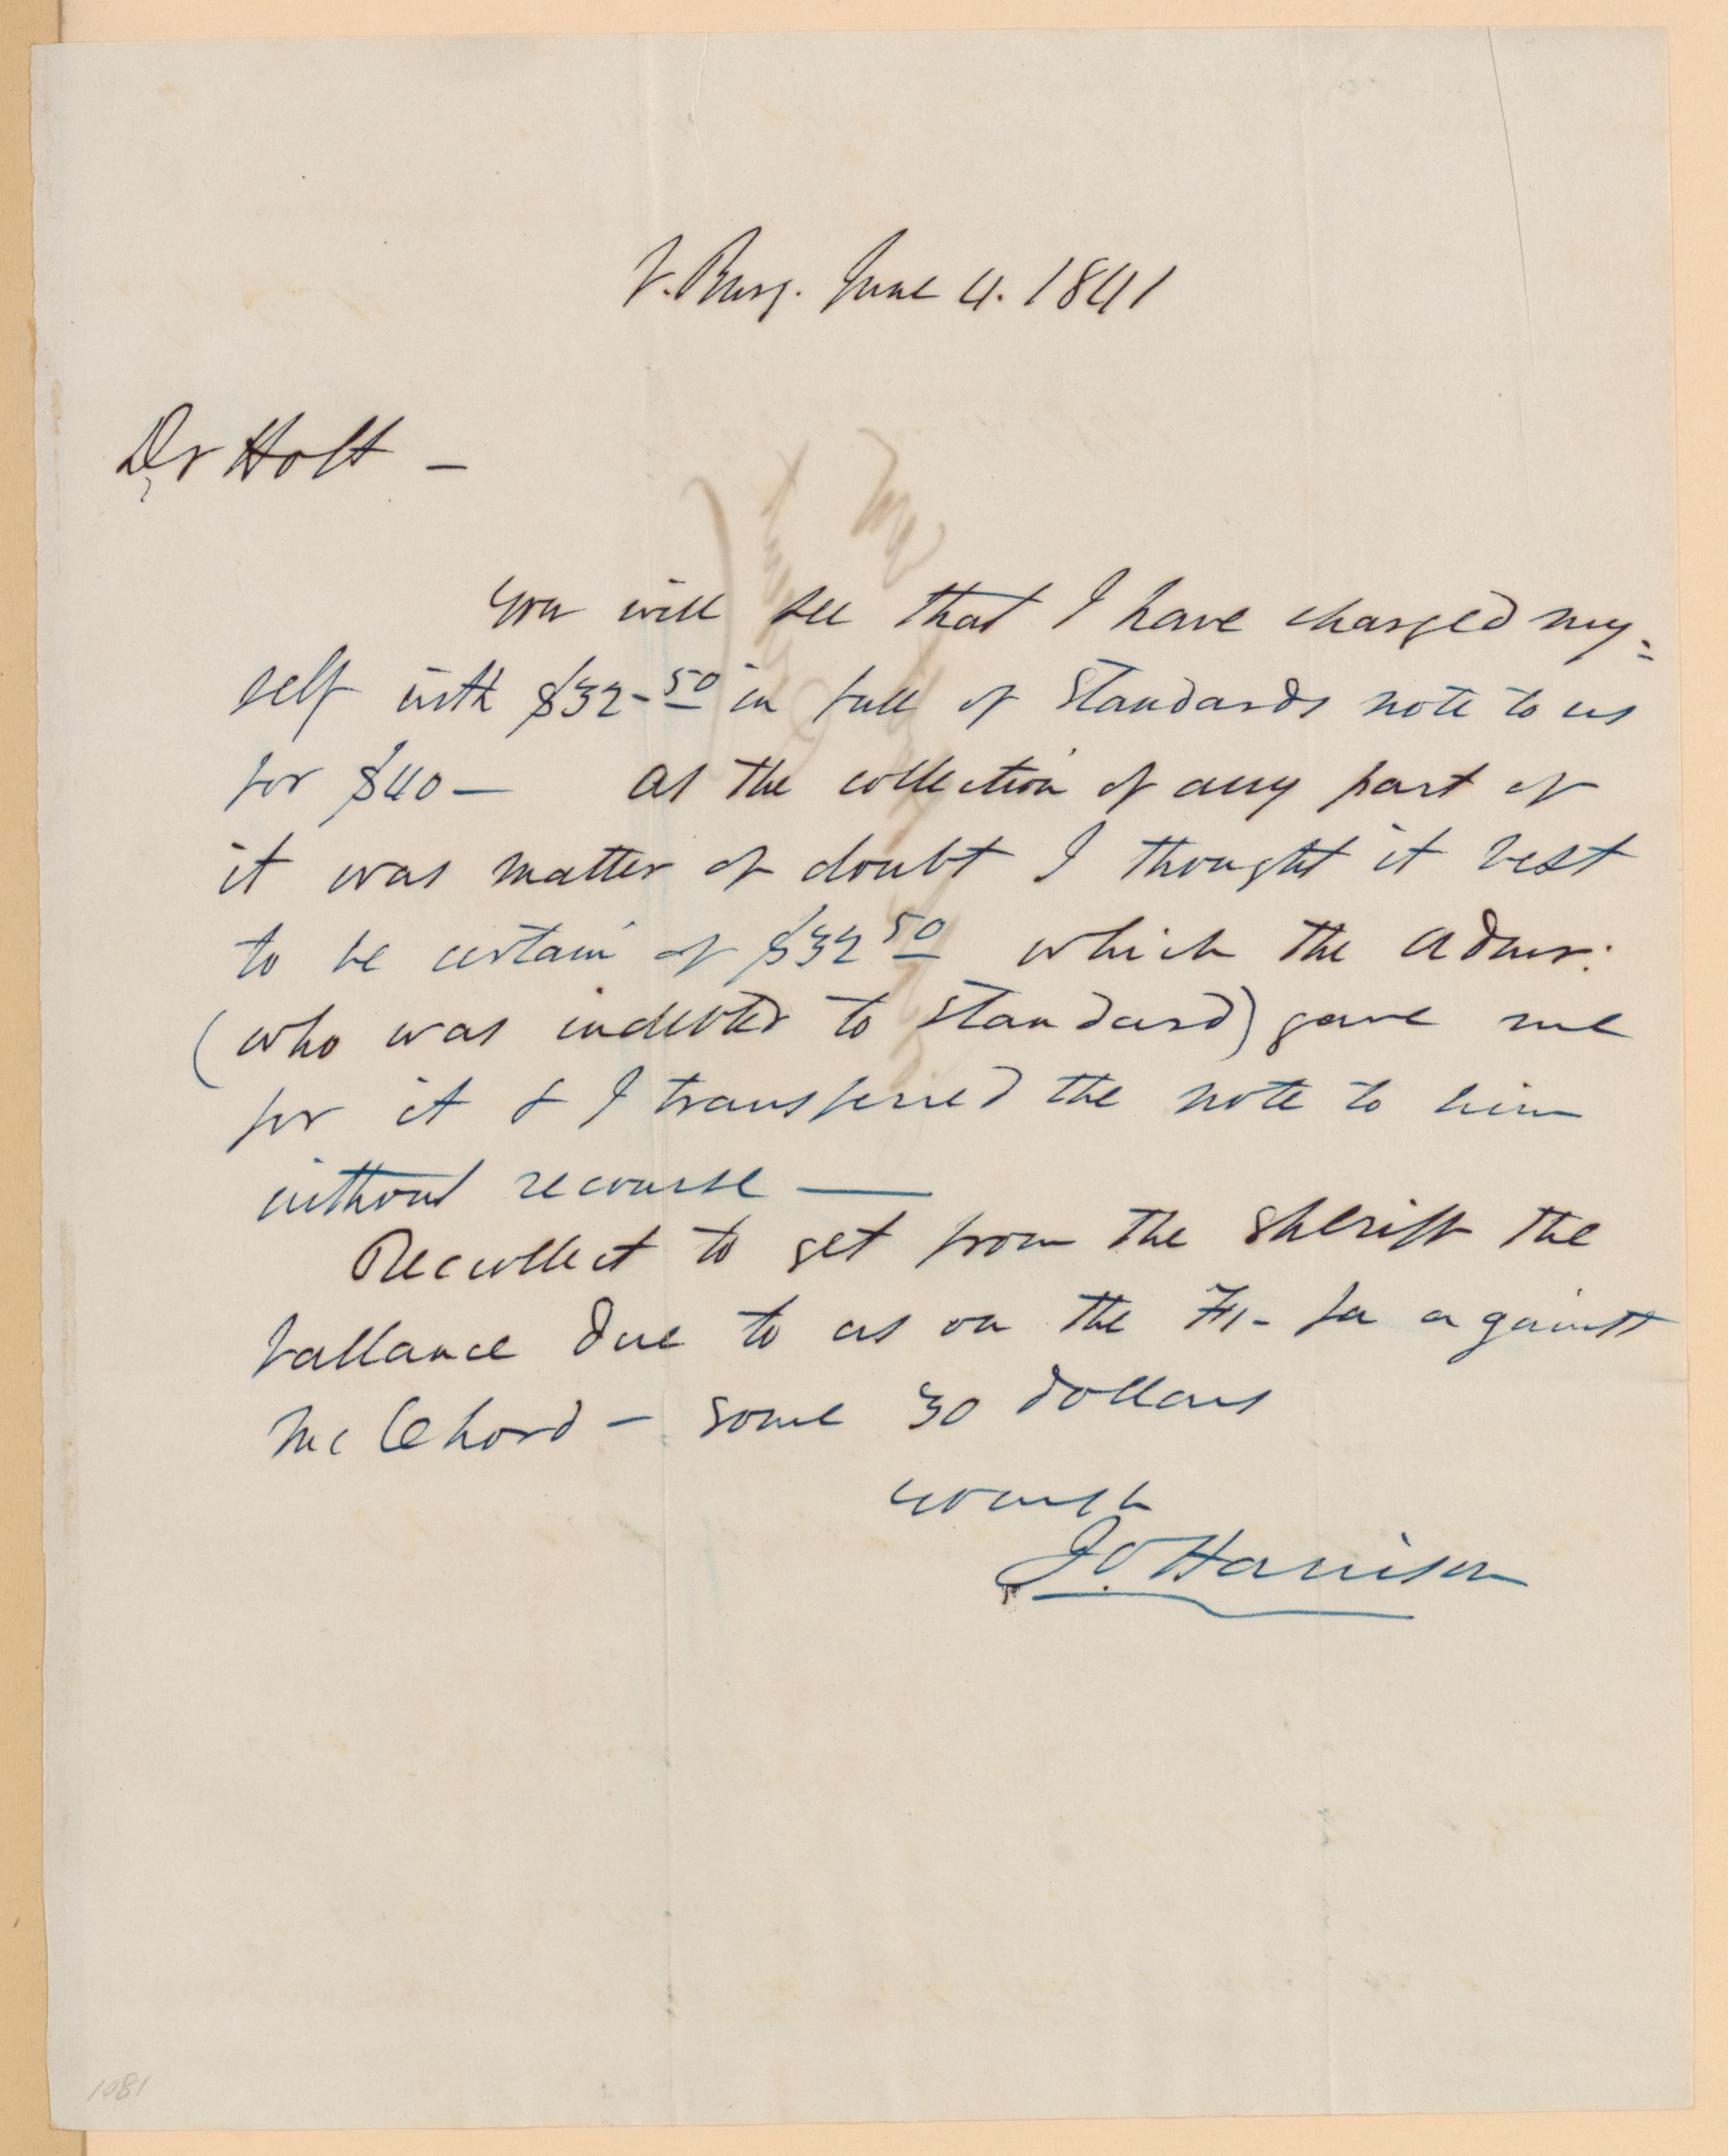 V. Burg. June 4. 1841
Dr Holt —
You will see that I have charged my=
self with $32-50 in full of Standards note to us
for $40 — As the collection of any part of
it was matter of doubt I thought it best
to be certain of $32 50 which the Admr.
(who was indebted to Standard) gave me
for it & I transferred the note to him
without recourse —
Recollect to get from the Sheriff the
ballance due to us on the Fi- fa against
McChord — some 30 dollars
J.O Harrison
1081